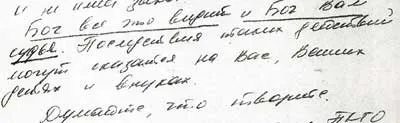 и не имея зако
Бог все это видит и Бог Вам
судья. Последствия таких действий
могут сказатся на Вас, Ваших
детях и внуках.
Думайте, что творите.